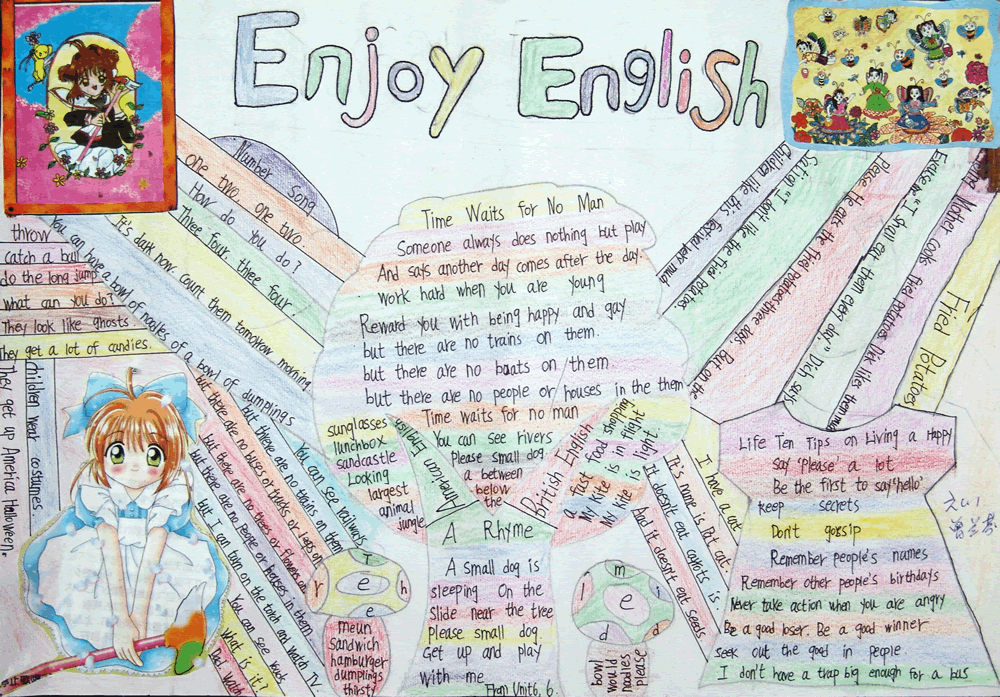 Enjoy English
Number song
one two, one two
How do you do?
Three four, three four
It's dark now. count them tomorrow morning
You can have a bowl of noodles of a bowl of dumplings
throw
catch a ball
do the long jump
what can you do?
They look like ghosts
They get a lot of candies.
children wear costumes
They get up America Halloween.
Time Waits for No Man
Someone always does nothing but play
And says another day comes after the day.
work hard when you are young
Reward you with being happy and gay
but there are no trains on them.
but there are no boats on them.
but there are no people or houses in the them
Time waits for no man
sunglasses
lunchbox
sandcastle
Looking
largest
animal
jungle
American English
You can see rivers
Please small dog
a between
below
the
British English
a fast food shopping
My kite is in flight
My kite is light
A Rhyme
A small dog is
sleeping On the
Slide near the tree
please small dog.
Get up and play
with me
From Unit 6, 6.
You can see railways
but there are no trains on them
but there are no buses of trucks or
but there are no trees or flowers on
but there are no people or houses in them
but I can turn on the totch and watch TV.
You can see
what is it?
T
r e h
e
meun
sandwich
hamburger
dumplings
thirsty
m
r e i
d d
bowl
would
noodles
please
Children like this festival very much
Sation "I don't like the fried potatoes
Please He eats the fried potatoes three days. But on the
"I shall eat them every day." Dick says
Mother cooks fried potatoes. Dick like them
Fried Potatoes
I have a cat
It's name is Pat cat.
It doesn't eat carrots is
And it doesn't eat seeds
Life Ten Tips on Living a Happy
Say 'Please' a lot
Be the first to say 'hello'
keep secrets
Don't gossip
Remember people's names
Remember other people's birthdays
Never take action when you are angry
Be a good loser. Be a good winner
seek out the good in people
I don't have a trap big enough for a bus